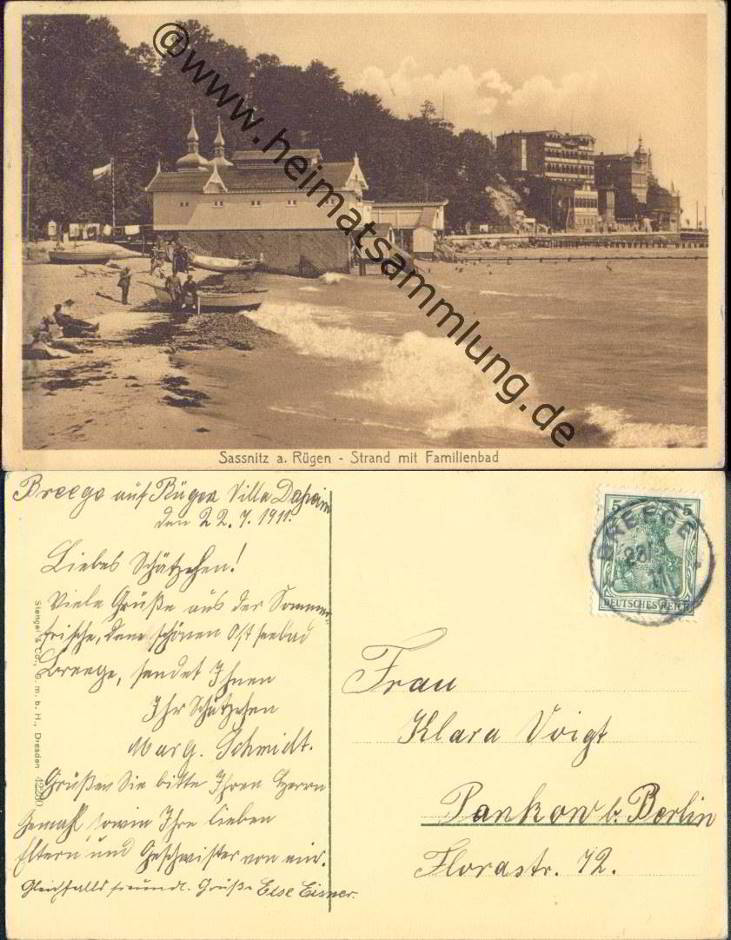 @www.heimatsammlung.de
Sassnitz a. Rügen - Strand mit Familienbad
Breege auf Rügen Villa Daheim
den 22.7.1911.
Liebes Schätzchen!
Viele Grüße aus der Sommer-
frische, dem schönen Ostseebad
Breege, sendet Ihnen
Ihr Schätzchen
Marg. Schmidt.
Grüßen Sie bitte Ihren Herrn
Gemahl sowie Ihre lieben
Eltern und Geschwister von mir.
Gleichfalls freundl. Grüße Else Eisner.
Stengel & Co., G. m. b. H., Dresden
5 5
BREEGE
DEUTSCHES REICH
Frau
Klara Voigt
Pankow b. Berlin
Florastr. 72.